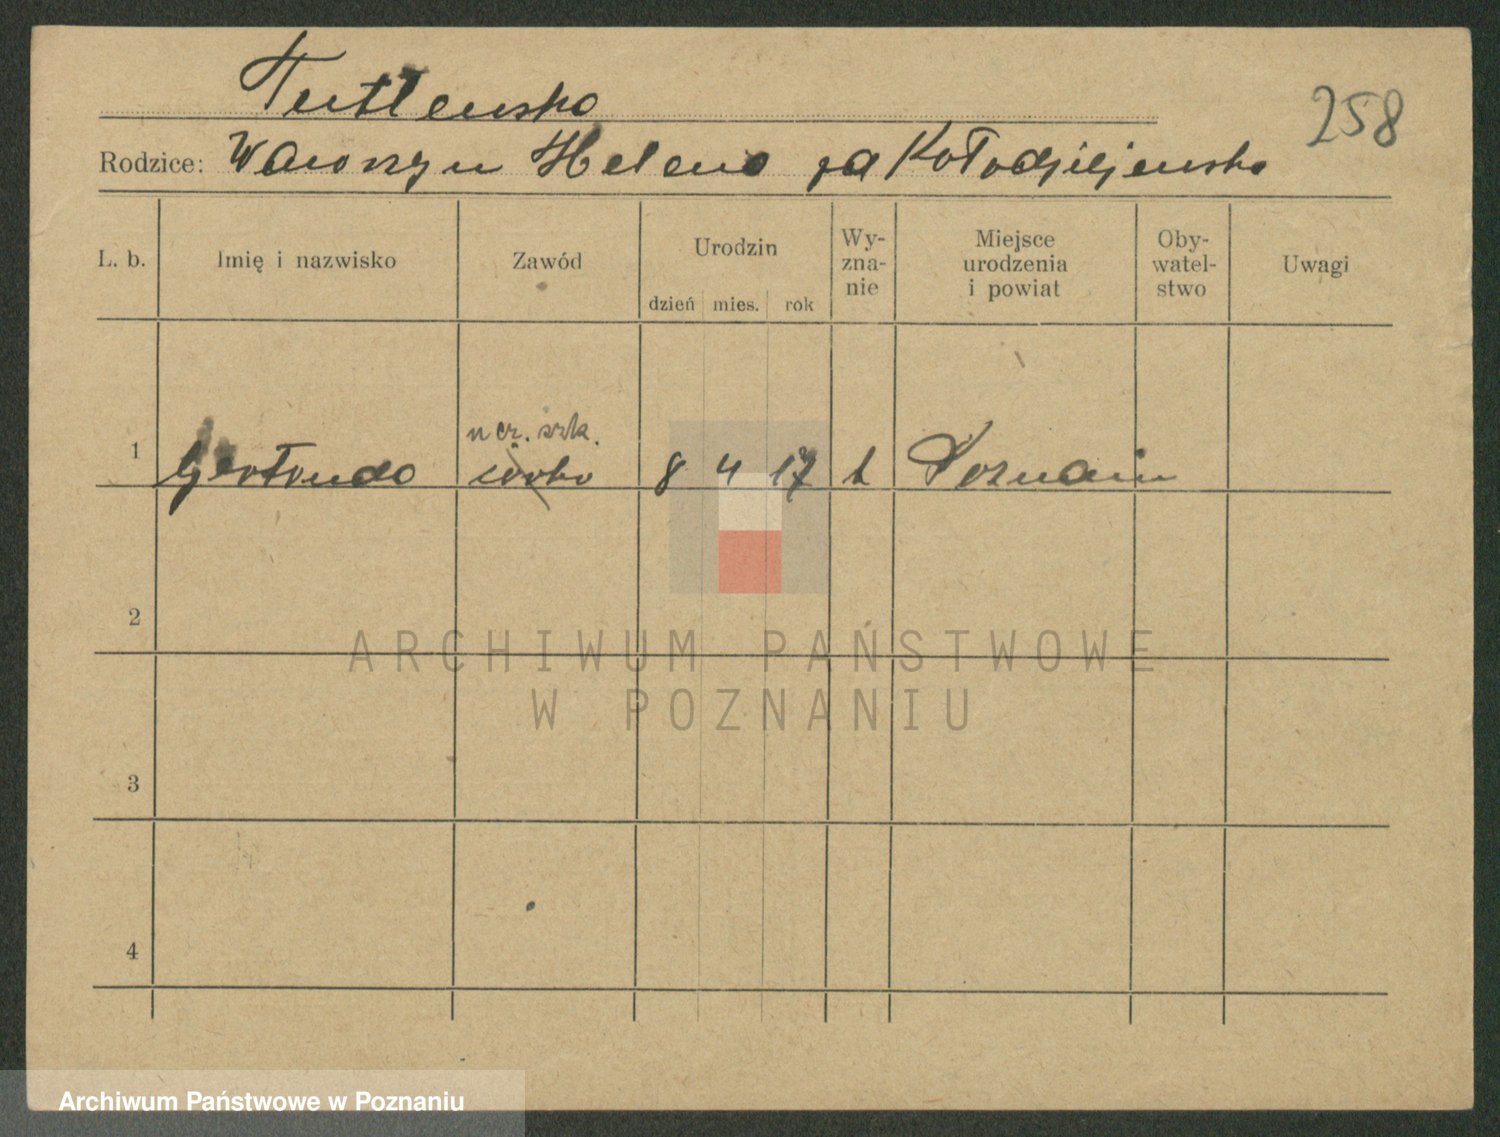 Tutlewska
258
Rodzice: Wawrzyn Helena za Kołodziejewska
L. b.
Imię i nazwisko
Zawód
Urodzin
dzień mies. rok
Wy-
zna-
nie
Miejsce
urodzenia
i powiat
Oby-
watel-
stwo
Uwagi
ucz. szk.
1 Gertruda córka 8 4 17 k Poznań
2
3
4
ARCHIWUM PAŃSTWOWE
W POZNANIU
Archiwum Państwowe w Poznaniu